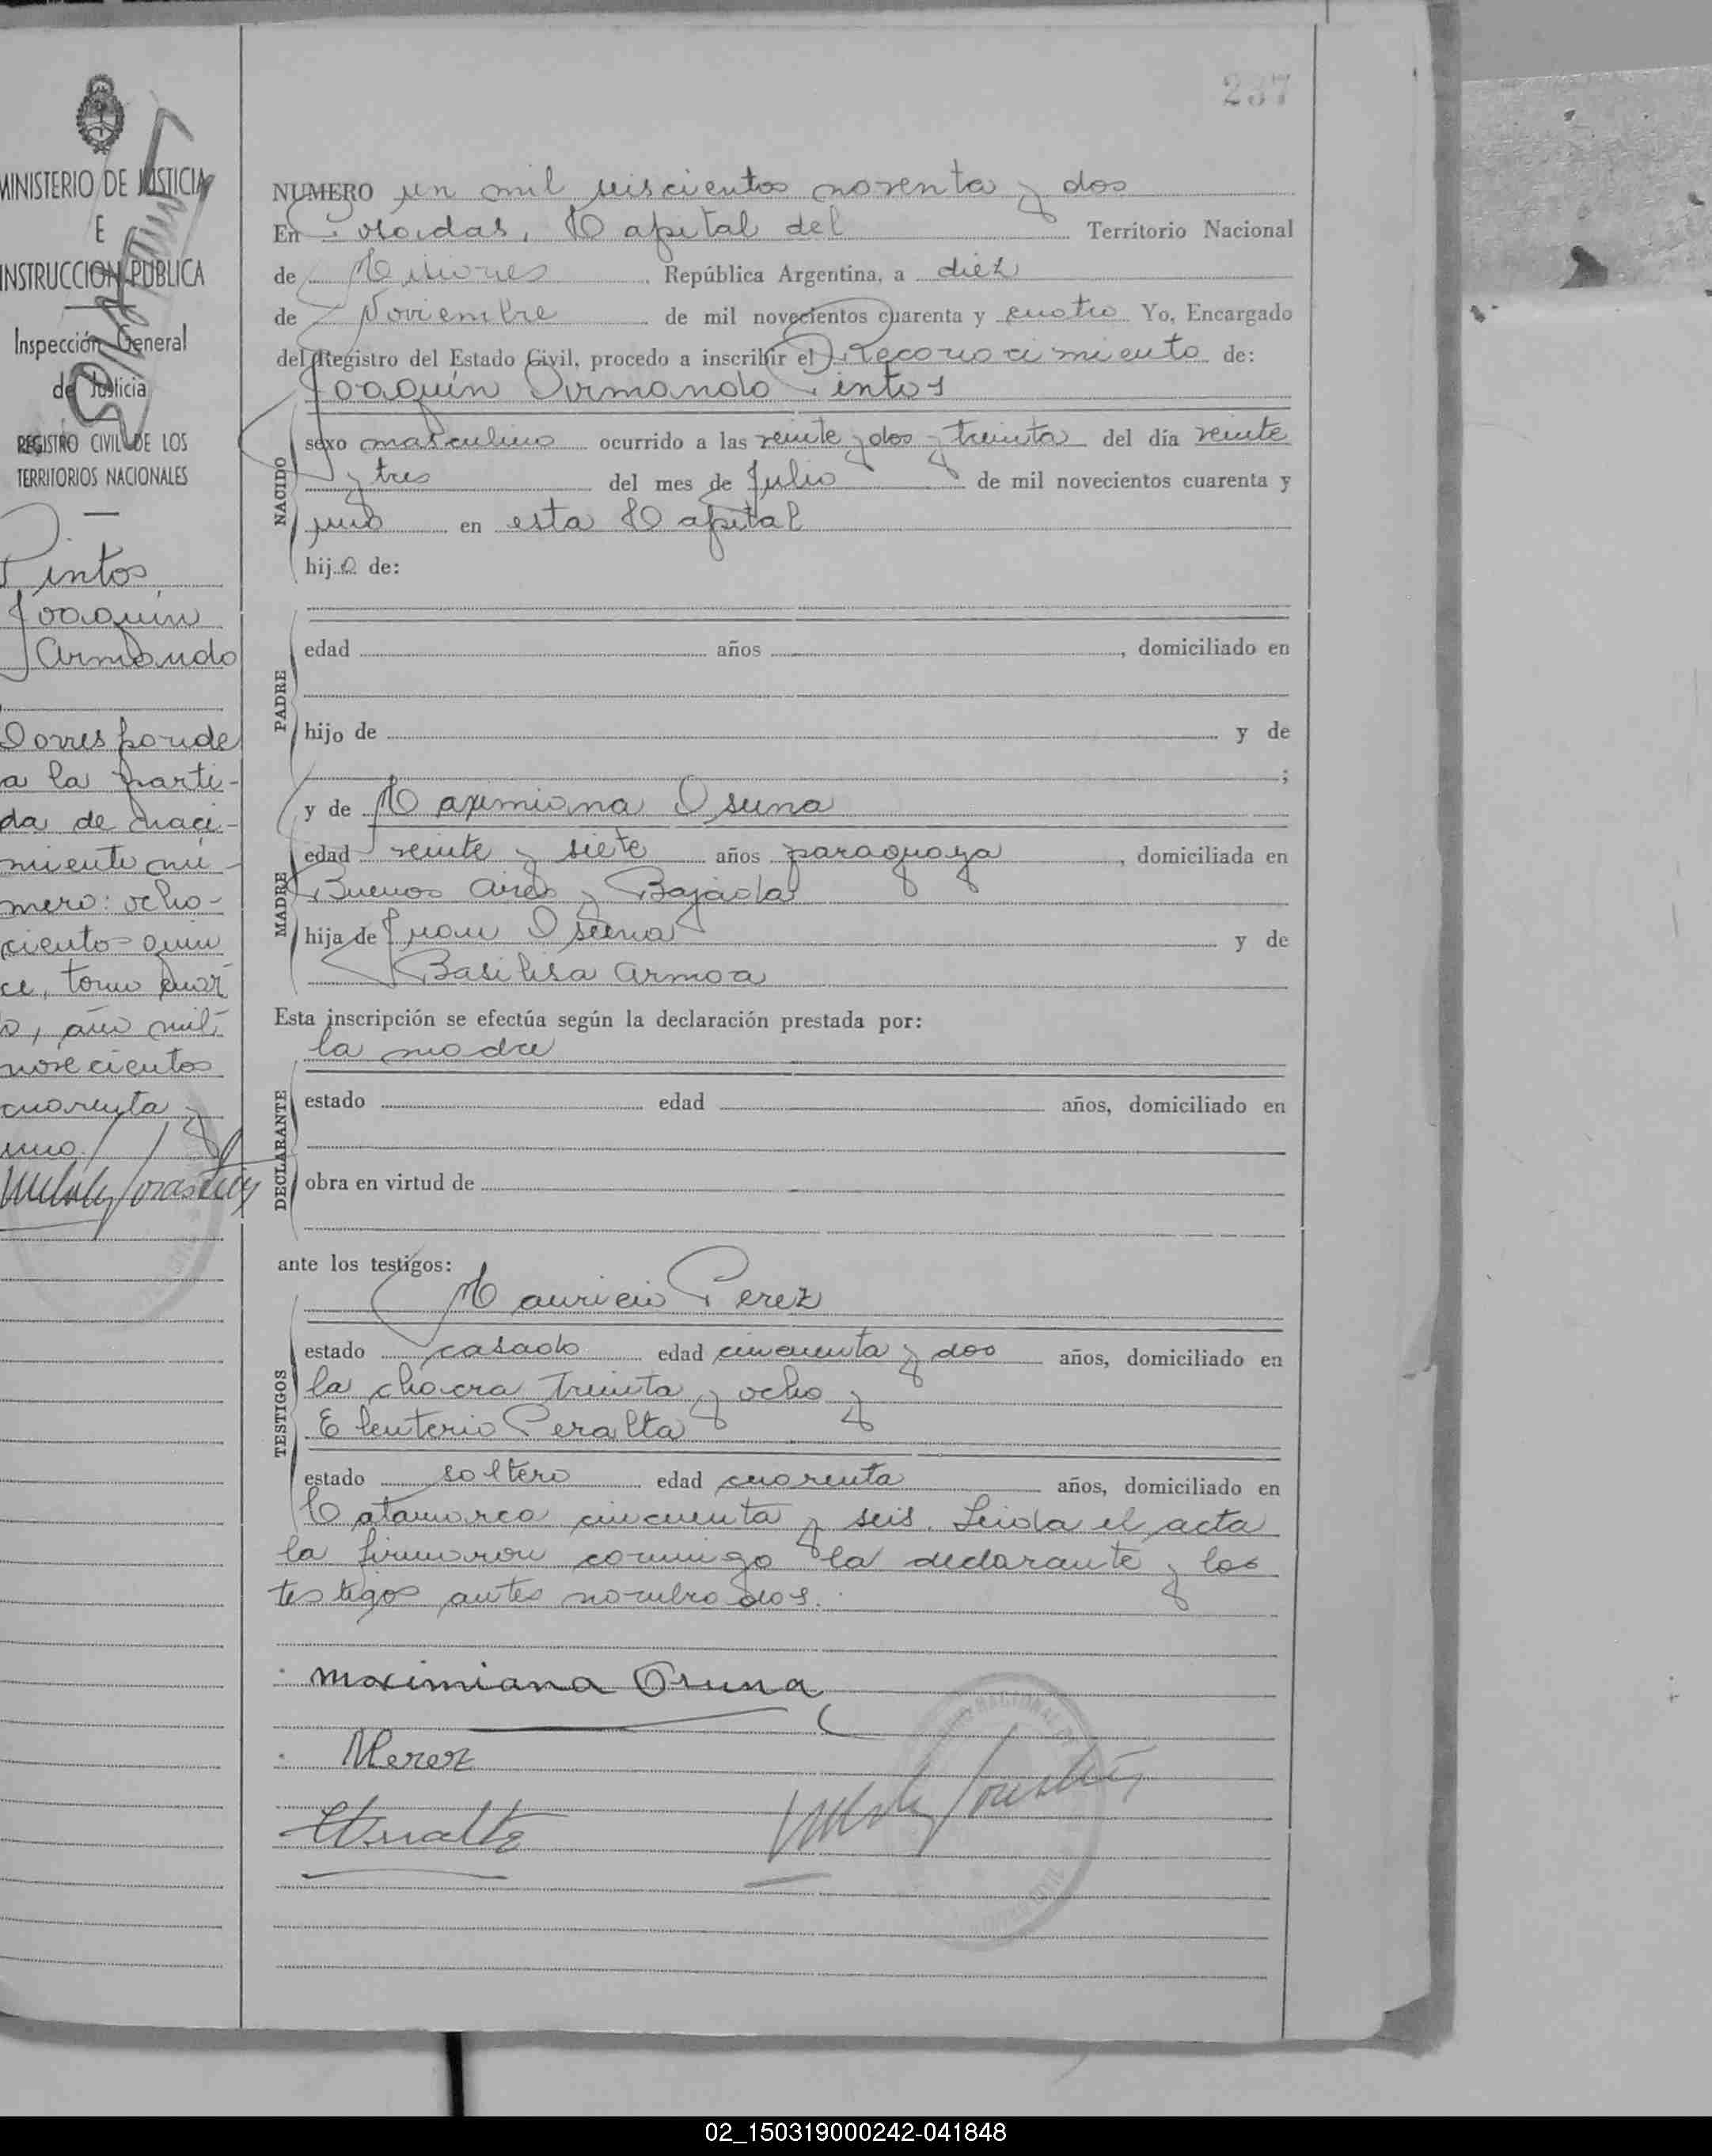 237
MINISTERIO DE JUSTICIA
E
INSTRUCCION PUBLICA
Inspección General
de Justicia
REGISTRO CIVIL DE LOS
TERRITORIOS NACIONALES
Pintos
Joaquín
Armando
Corresponde
a la parti-
da de naci-
miento nú-
mero: ocho-
ciento quin
ce, tomo cuar
to, año mil
novecientos
cuarenta y
uno.
NUMERO un mil seiscientos noventa y dos
En Posadas, Capital del Territorio Nacional
de Misiones República Argentina, a diez
de Noviembre de mil novecientos cuarenta y cuatro Yo, Encargado
del Registro del Estado Civil, procedo a inscribir el Reconocimiento de:
Joaquín Armando Pintos
NACIDO
sexo masculino ocurrido a las veinte y dos y treinta del día veinte
y tres del mes de Julio de mil novecientos cuarenta y
uno en esta Capital
hijo de:
PADRE
edad años , domiciliado en
hijo de y de
;
y de Maximiana Osuna
MADRE
edad veinte y siete años paraguaya , domiciliada en
Buenos Aires y Bajada
hija de Juan Osuna y de
Basilisa Armoa
Esta inscripción se efectúa según la declaración prestada por:
la madre
DECLARANTE
estado edad años, domiciliado en
obra en virtud de
ante los testigos:
Mauricio Perez
TESTIGOS
estado casado edad cincuenta y dos años, domiciliado en
la chacra treinta y ocho y
Eleuterio Peralta
estado soltero edad cuarenta años, domiciliado en
Catamarca cincuenta y seis. Leida el acta
la firmaron conmigo la declarante y los
testigos antes nombrados.
Maximiana Osuna
MPerez
EPeralta
02_150319000242-041848